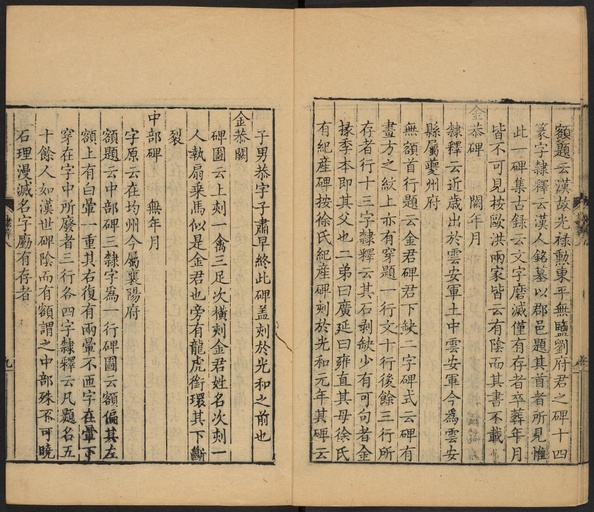 額題云漢故光祿勲東平無鹽劉府君之碑十四
篆字隸釋云漢人銘墓以郡邑題其首者所見惟
此一碑集古録云文字磨滅僅有存者卒葬年月
皆不可見按歐洪兩家皆云有陰而其書不載
金恭碑 闕年月
隸釋云近歲出於雲安軍土中雲安軍今為雲安
縣屬夔州府
無額首行題云金君碑君下缺二字碑式云碑有
畫方之紋上亦有穿題一行文十行後餘三行所
存者行十三字隸釋云其石剥缺少有可句者金
掾季本即其父也二弟曰廣延曰雍直其母徐氏
有紀産碑按徐氏紀産碑刻於光和元年其碑云
子男恭字子肅早終此碑盖刻於光和之前也
金恭闕
碑圖云上刻一禽三足次横刻金君姓名次刻一
人執扇乗馬似是金君也旁有龍虎銜環其下斷
裂
中部碑 無年月
字原云在均州今屬襄陽府
額題云中部碑三隸字為一行碑圖云額偏其左
額上有白暈一重其右復有兩暈不匝字在暈下
穿在字中所廢者三行各四字隸釋云凡題名五
十餘人如漢世碑陰而有額謂之中部殊不可曉
石理漫滅名字厪有存者